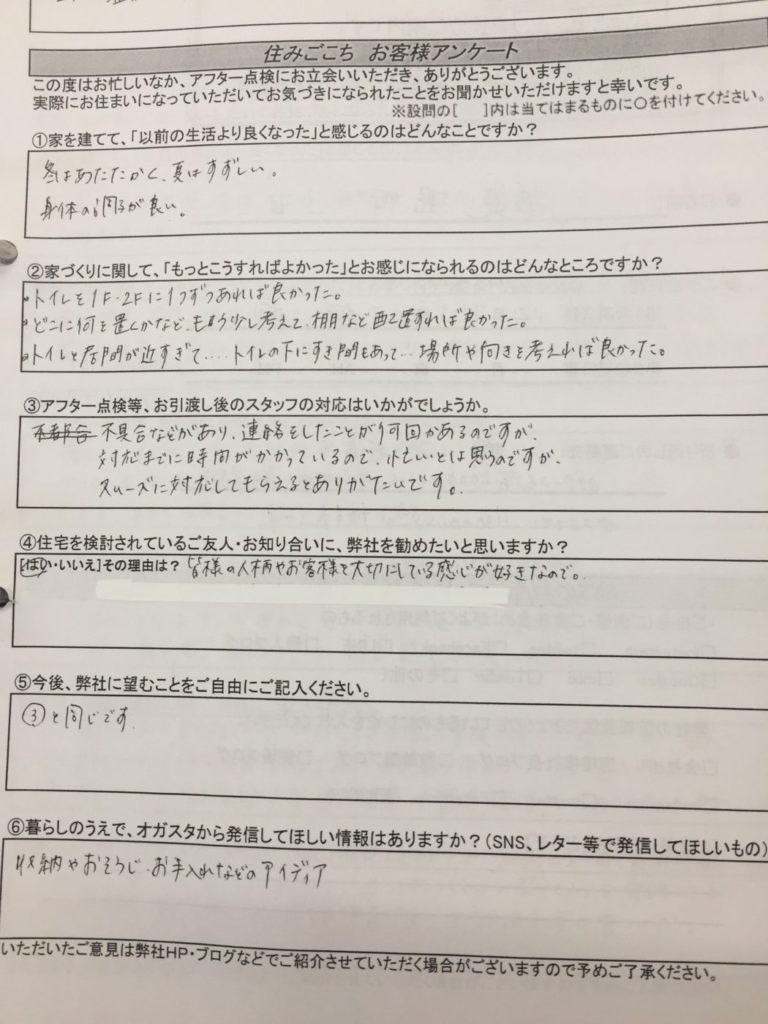 住みごこち お客様アンケート
この度はお忙しいなか、アフター点検にお立会いいただき、ありがとうございます。
実際にお住まいになっていただいてお気づきになられたことをお聞かせいただけますと幸いです。
※設問の[ ]内は当てはまるものに○を付けてください。
①家を建てて、「以前の生活より良くなった」と感じるのはどんなことですか？
冬はあたたかく、夏はすずしい。
身体の調子が良い。
②家づくりに関して、「もっとこうすればよかった」とお感じになられるのはどんなところですか？
・トイレを1F・2Fに1つずつあれば良かった。
・どこに何を置くかなど、もう少し考えて、棚など配置すれば良かった。
・トイレと居間が近すぎて....トイレの下にすき間もあって...場所や向きを考えれば良かった。
③アフター点検等、お引渡し後のスタッフの対応はいかがでしょうか。
不具合などがあり、連絡をしたことが何回かあるのですが、
対応までに時間がかかっているので、忙しいとは思うのですが、
スムーズに対応してもらえるとありがたいです。
④住宅を検討されているご友人・お知り合いに、弊社を勧めたいと思いますか？
[はい・いいえ]その理由は？ 皆様の人柄やお客様を大切にしている感じが好きなので。
⑤今後、弊社に望むことをご自由にご記入ください。
③と同じです。
⑥暮らしのうえで、オガスタから発信してほしい情報はありますか？（SNS、レター等で発信してほしいもの）
収納やおそうじ、お手入れなどのアイディア
いただいたご意見は弊社HP・ブログなどでご紹介させていただく場合がございますので予めご了承ください。